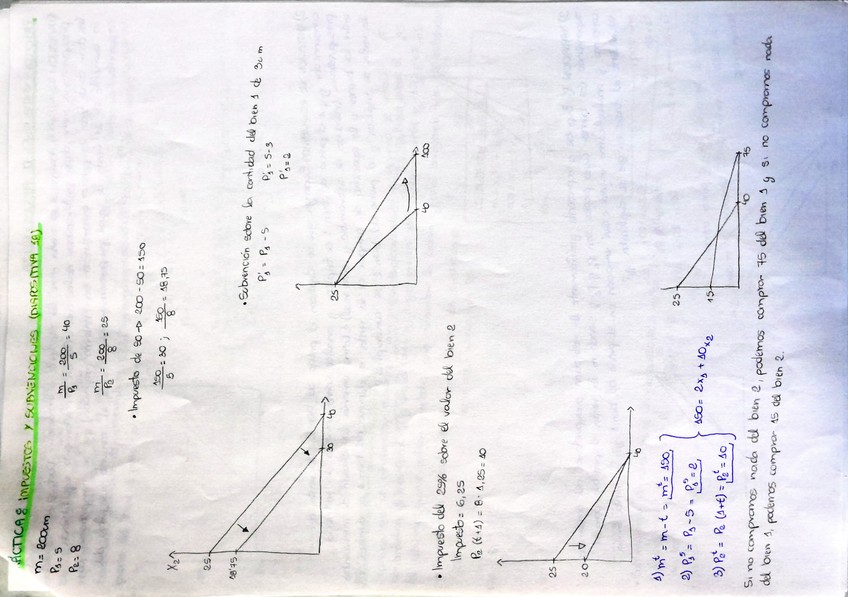 ÁCTICA 2 IMPUESTOS Y SUBVENCIONES (DIAPOSITIVA 18)
m = 200um
P1 = 5
P2 = 8
m/P1 = 200/5 = 40
m/P2 = 200/8 = 25
• Impuesto de 50 → 200 - 50 = 150
150/5 = 30 ; 150/8 = 18,75
X2
25
18'75
30
40
• Subvención sobre la cantidad del bien 1 de 3um
P'1 = P1 - S
P'1 = 5-3
P'1 = 2
25
40
100
• Impuesto del 25% sobre el valor del bien 2
Impuesto = 6,25
P2 (t+1) = 8 · 1,25 = 10
25
20
40
1) m^t = m - t = m^t = 150
2) P1^s = P1 - S = P1^s = 2
3) P2^t = P2 (1+t) = P2^t = 10
150 = 2x1 + 10x2
25
15
40
75
Si no compramos nada del bien 2, podemos comprar 75 del bien 1 y si no compramos nada
del bien 1, podemos comprar 15 del bien 2.